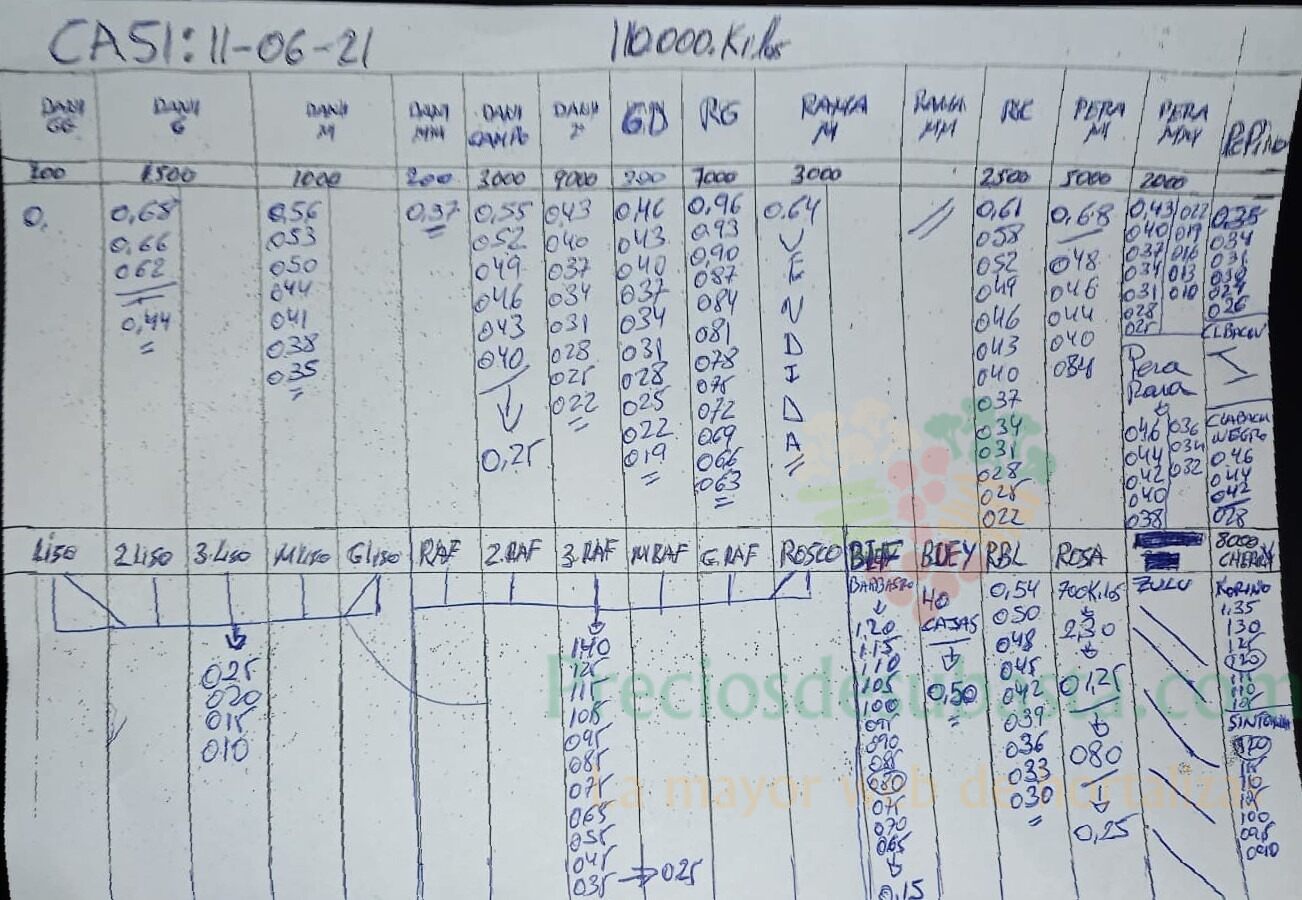 CASI: 11-06-21 110.000.Kilos
DANI GG DANI G DANI M DANI MM DANI CANAb DANI 2 GD RG RAMA M RAMA MM RK PERA M PERA MM PEPINO
200 1500 1000 200 3000 9000 200 7000 3000 2500 5000 2000
0, 0,68 0,56 0,37 0,55 043 0,46 0,96 0,64 0,61 0,68 0,43 022 0,38
0,66 053 052 040 043 093 V 058 040 019 034
062 050 049 037 040 090 E 052 048 037 016 031
044 046 034 037 087 N 049 046 034 013
0,44 041 043 031 034 084 D 046 044 031 010
038 040 028 031 081 I 043 040 028 026
035 025 028 078 D 040 084 025
022 025 075 A 037
0,25 022 072 034
019 069 031
066 028
063 025
022
Pera
Rama
046 036
044 034
042 032
040
038
NEGRO
046
044
042
028
LISO 2 LISO 3.LISO M LISO G LISO RAF 2.RAF 3.RAF M RAF G.RAF ROSCO BIF BUEY RBL ROSA 8000 CHERRY
025
020
015
010
140
125
115
105
095
085
075
065
055
045
035 → 025
BARBASTRO
1,20
1,15
110
105
100
095
090
085
080
075
070
065
0,15
40
CAJAS
0,50
0,54
050
048
045
042
039
036
033
030
700Kilos
2,30
0,25
080
0,25
ZULU
1,35
130
125
120
115
110
105
120
115
110
105
100
095
090
Preciosdesubasta.com
La mayor web de hortalizas